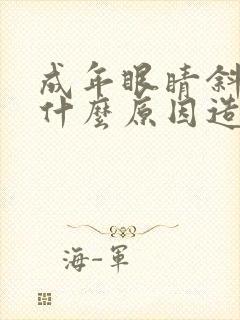 成年眼睛斜
什麼原因造
海-軍